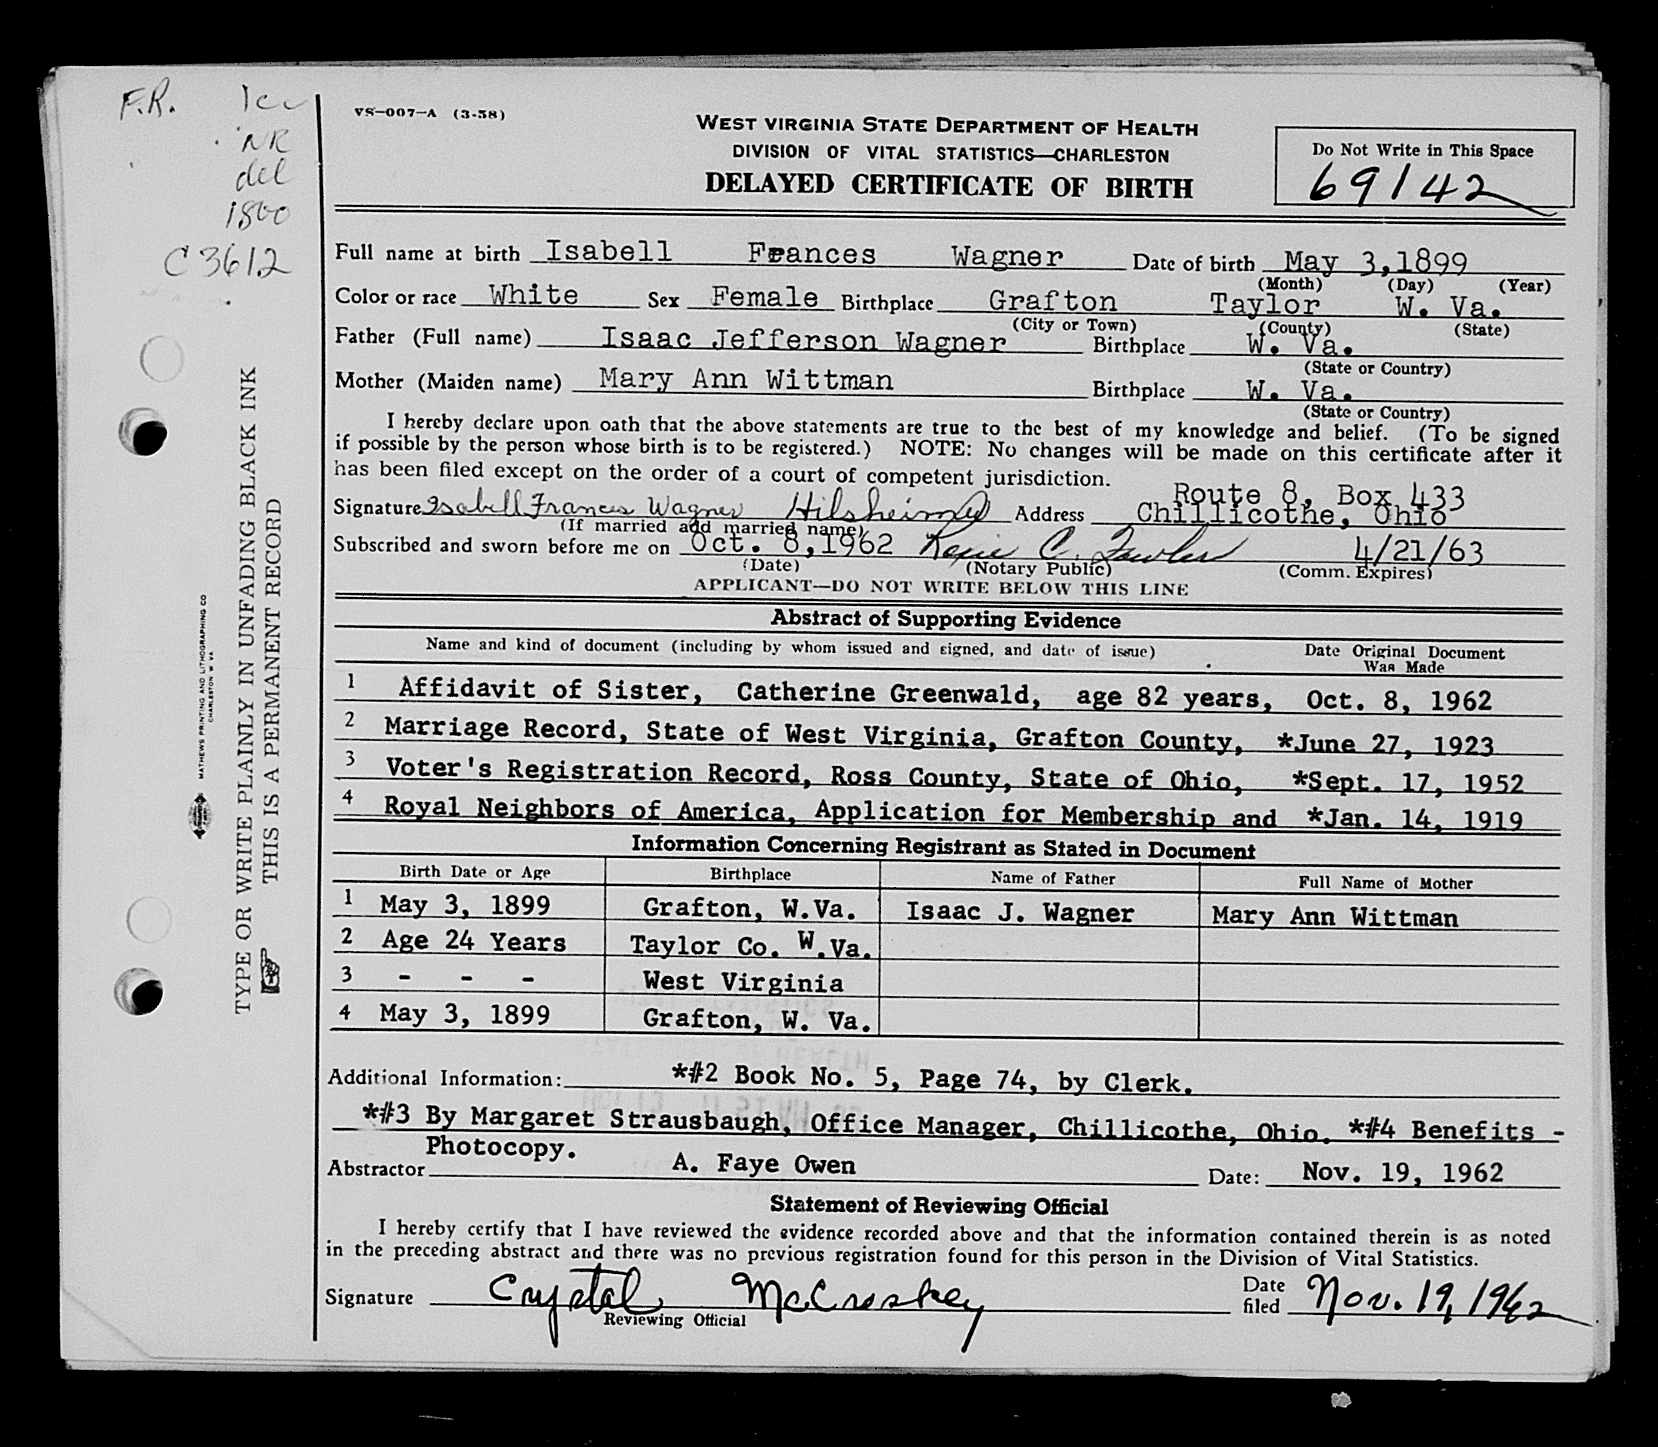 F.R. 1cc
NR
del
1800
C3612
VS-007-A (3-58)
WEST VIRGINIA STATE DEPARTMENT OF HEALTH
DIVISION OF VITAL STATISTICS—CHARLESTON
DELAYED CERTIFICATE OF BIRTH
Do Not Write in This Space
69142
Full name at birth Isabell Frances Wagner Date of birth May 3,1899
(Month) (Day) (Year)
Color or race White Sex Female Birthplace Grafton Taylor W. Va.
(City or Town) (County) (State)
Father (Full name) Isaac Jefferson Wagner Birthplace W. Va.
(State or Country)
Mother (Maiden name) Mary Ann Wittman Birthplace W. Va.
(State or Country)
I hereby declare upon oath that the above statements are true to the best of my knowledge and belief. (To be signed
if possible by the person whose birth is to be registered.) NOTE: No changes will be made on this certificate after it
has been filed except on the order of a court of competent jurisdiction.
Route 8, Box 433
Signature Isabell Frances Wagner Address Chillicothe, Ohio
(If married add married name)
Subscribed and sworn before me on Oct. 8,1962 C. 4/21/63
(Date) (Notary Public) (Comm. Expires)
APPLICANT—DO NOT WRITE BELOW THIS LINE
Abstract of Supporting Evidence
Name and kind of document (including by whom issued and signed, and date of issue) Date Original Document
Was Made
1 Affidavit of Sister, Catherine Greenwald, age 82 years, Oct. 8, 1962
2 Marriage Record, State of West Virginia, Grafton County, *June 27, 1923
3 Voter's Registration Record, Ross County, State of Ohio, *Sept. 17, 1952
4 Royal Neighbors of America, Application for Membership and *Jan. 14, 1919
Information Concerning Registrant as Stated in Document
Birth Date or Age Birthplace Name of Father Full Name of Mother
1 May 3, 1899 Grafton, W.Va. Isaac J. Wagner Mary Ann Wittman
2 Age 24 Years Taylor Co. W.Va.
3 - - - West Virginia
4 May 3, 1899 Grafton, W. Va.
Additional Information: *#2 Book No. 5, Page 74, by Clerk.
*#3 By Margaret Strausbaugh, Office Manager, Chillicothe, Ohio. *#4 Benefits -
Photocopy.
Abstractor A. Faye Owen Date: Nov. 19, 1962
Statement of Reviewing Official
I hereby certify that I have reviewed the evidence recorded above and that the information contained therein is as noted
in the preceding abstract and there was no previous registration found for this person in the Division of Vital Statistics.
Signature Crystal McCroskey Date
filed Nov. 19, 1962
Reviewing Official
TYPE OR WRITE PLAINLY IN UNFADING BLACK INK
THIS IS A PERMANENT RECORD
MATHEWS PRINTING AND LITHOGRAPHING CO
CHARLESTON W VA